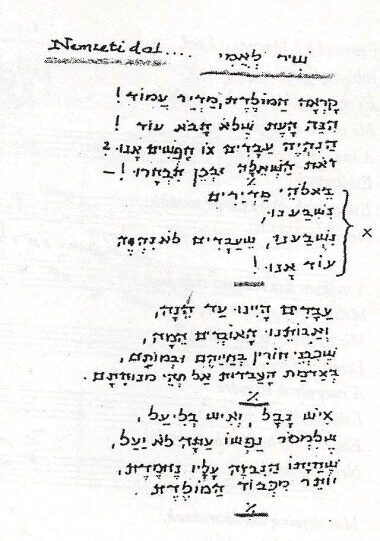 Nemzeti dal....
שִׁיר לְאֻמִּי
קָרְאָה הַמּוֹלֶדֶת, מַדְיָר עֲמוֹד!
הִנֵּה הָעֵת שֶׁלֹּא תָבֹא עוֹד!
הֲנִהְיֶה עֲבָדִים אוֹ חָפְשִׁים אָנוּ?
זֹאת הַשְּׁאֵלָה וּבְכֵן תִּבְחָרוּ! –
בֵּאלֹהֵי מַדְיָרִים
נִשְׁבַּענוּ,
נִשְׁבַּענוּ, שֶׁעֲבָדִים לֹא נִהְיֶה
עוֹד אָנוּ!
x
עֲבָדִים הָיִינוּ עַד הֵנָּה,
וַאֲבוֹתֵינוּ הָאוֹבְדִים הֵמָּה,
שֶׁכִּבְנֵי חוֹרִין בְּחַיֵּיהֶם וּבְמוֹתָם,
בְּאַדְמַת הָעַבְדוּת אַל תְּהִי מְנוּחָתָם.
אִישׁ נָבָל, וְאִישׁ בְּלִיַּעַל,
שֶׁלִּמְסֹר נַפְשׁוֹ עַתָּה לֹא יַעַל,
שֶׁחַיָּתוֹ הַנִּבְזָה עָלָיו נֶחְמֶדֶת,
יוֹתֵר מִכְּבוֹד הַמּוֹלֶדֶת.